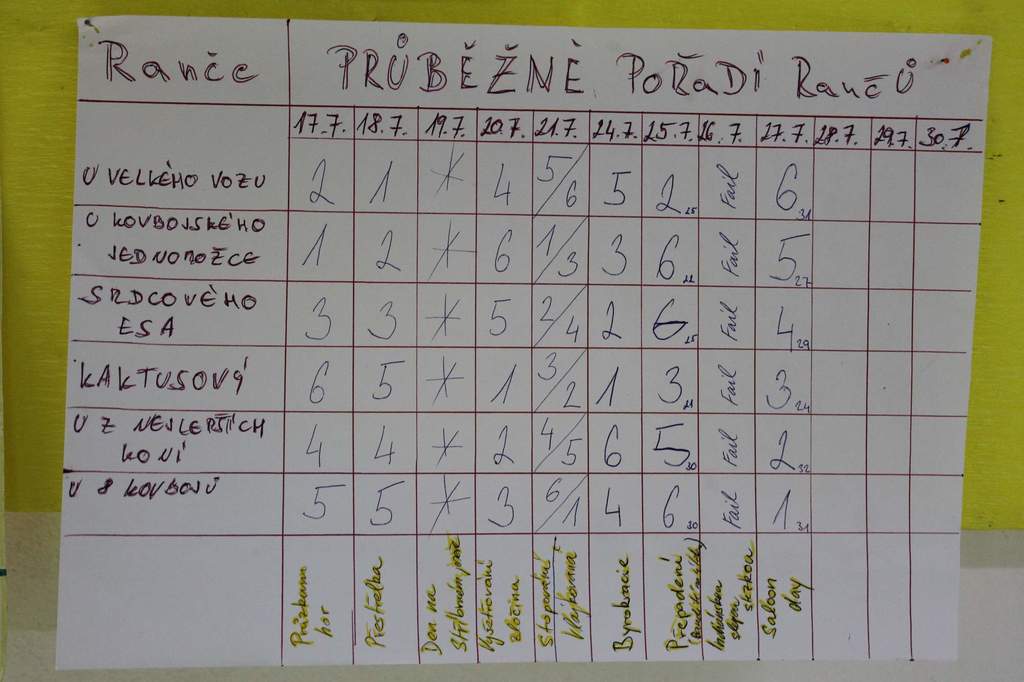 Ranče PRŮBĚŽNĚ POŘADÍ RančŮ
17.7. 18.7. 19.7. 20.7. 21.7. 24.7. 25.7. 26.7. 27.7. 28.7. 29.7. 30.7.
U VELKÉHO VOZU 2 1 * 4 5/6 5 2 25 Fail 6 31
U KOVBOJSKÉHO
JEDNOROŽCE 1 2 * 6 1/3 3 6 22 Fail 5 27
SRDCOVÉHO
ESA 3 3 * 5 2/4 2 6 25 Fail 4 29
KAKTUSOVÝ 6 5 * 1 3/2 1 3 21 Fail 3 24
U Z NEJLEPŠÍCH
KONÍ 4 4 * 2 4/5 6 5 30 Fail 2 32
U 8 KOVBOJŮ 5 5 * 3 6/1 4 6 30 Fail 1 31
Průzkum
hor
Přestřelka
Den na
Stříbrném
Vyšetřování
zločinu
Stopování +
Vlajkovaná
Byrokracie
Přepadení
Indiánskou
stezkou
Saloon
day